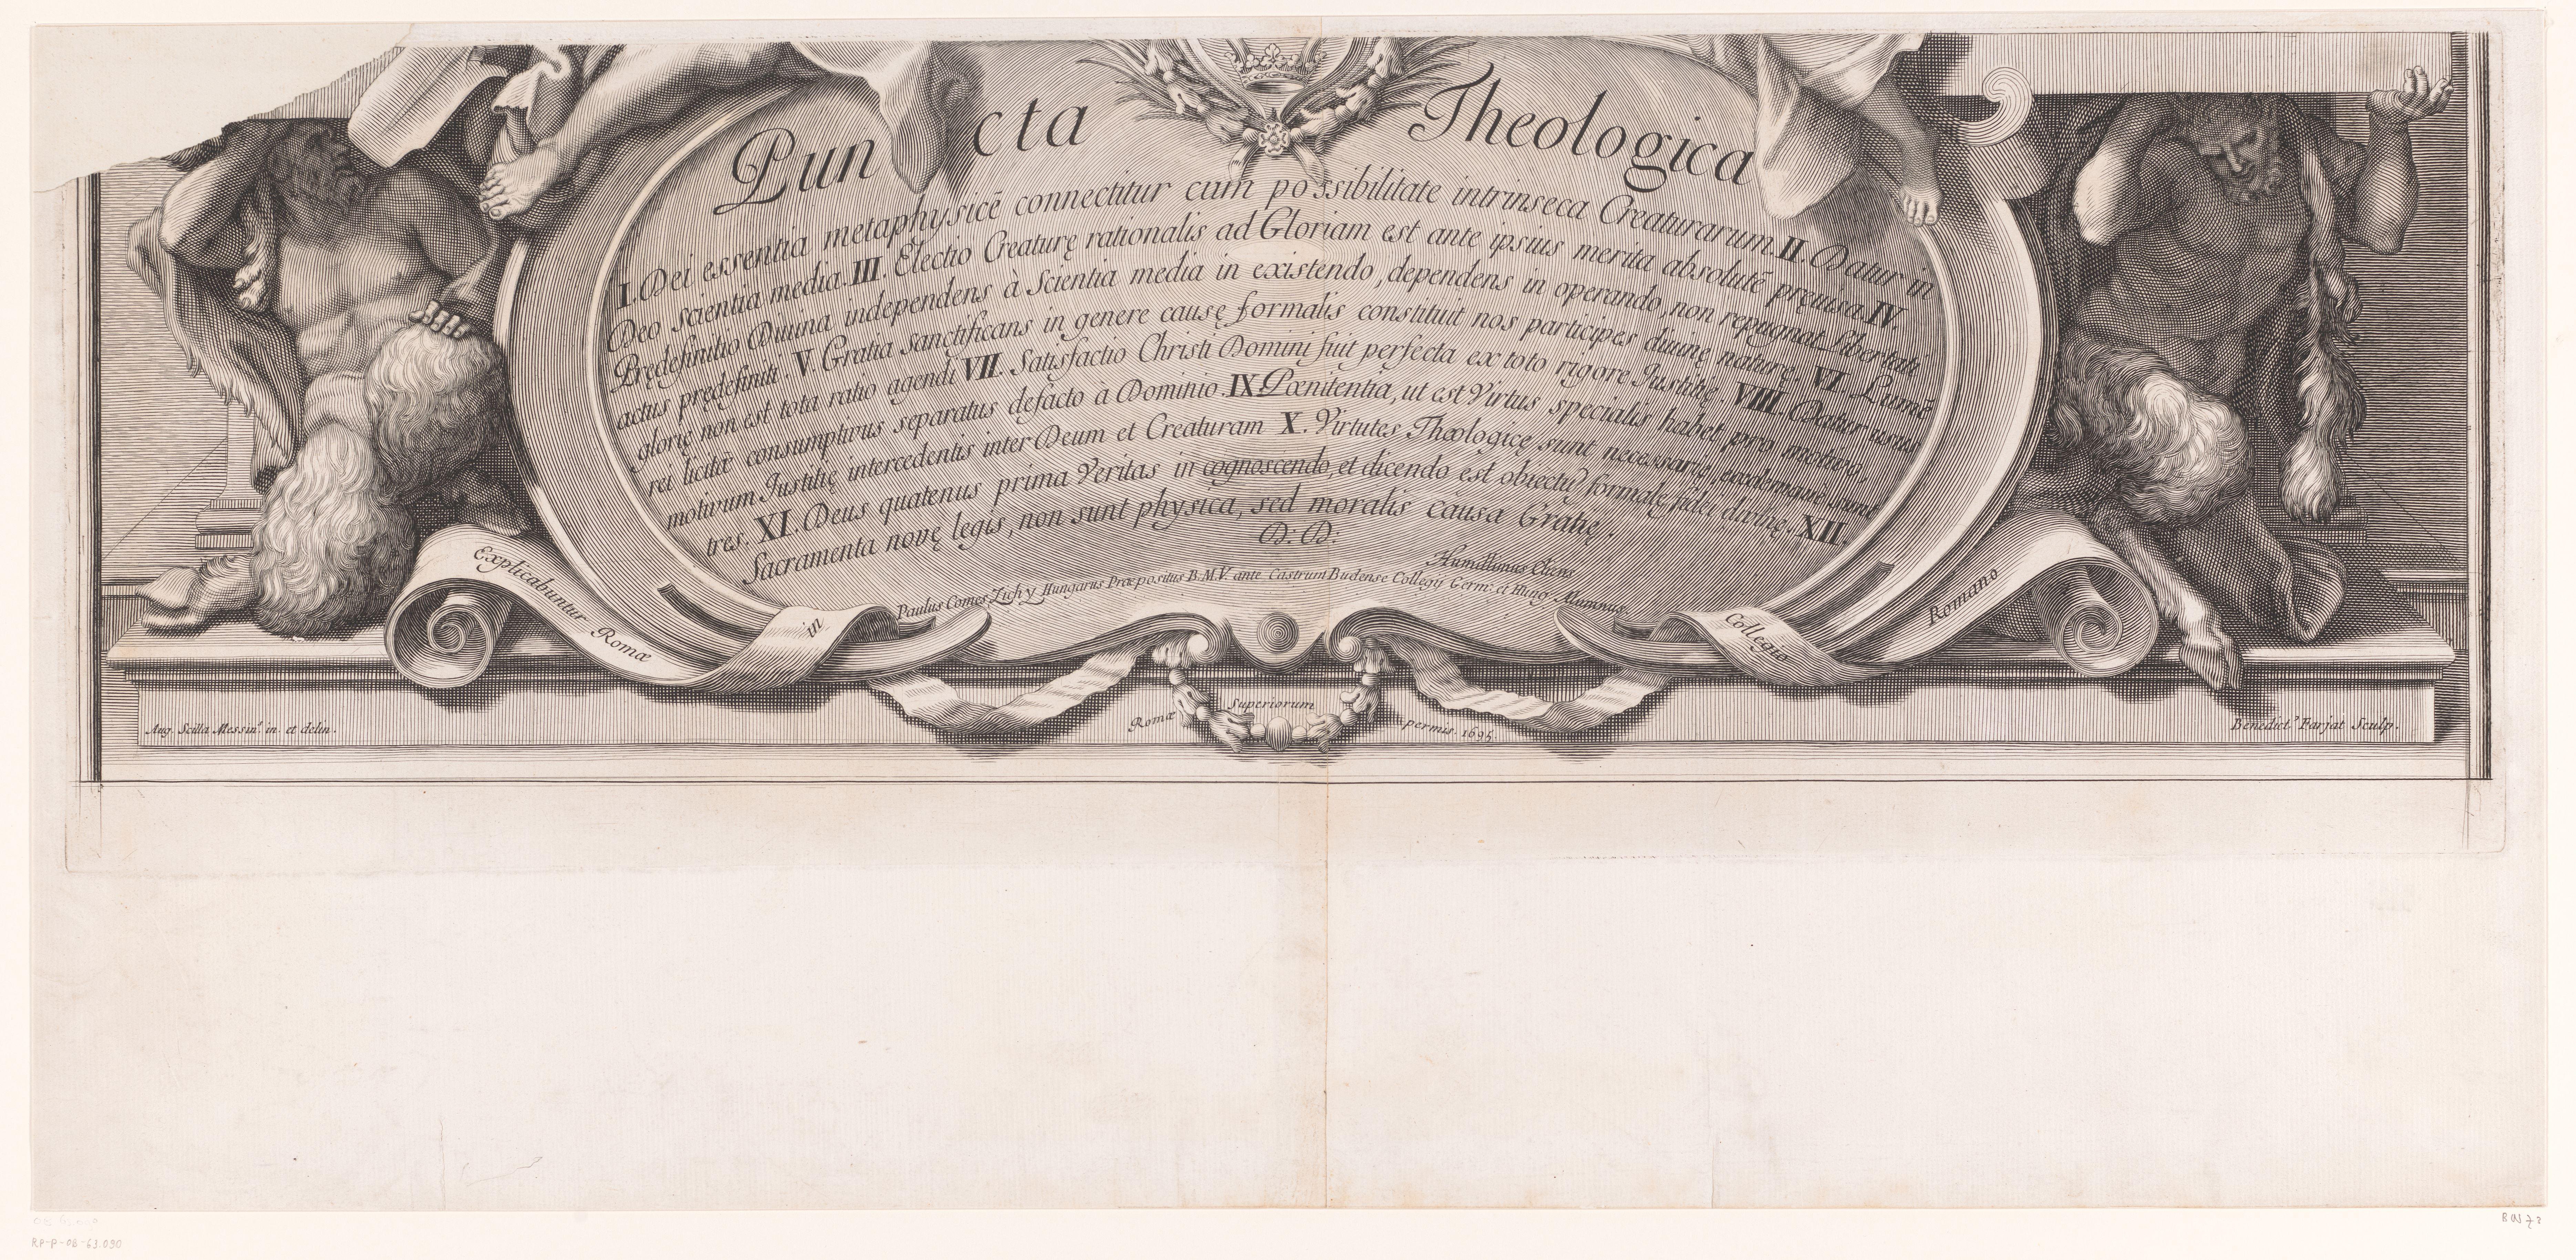 Puncta Theologica
I. Dei essentia metaphysicē connectitur cum possibilitate intrinseca Creaturarum. II. Datur in
Deo scientia media. III. Electio Creaturę rationalis ad Gloriam est ante ipsius merita absolutē pręuisa. IV.
Prędefinitio Diuina independens à Scientia media in existendo, dependens in operando, non repugnat Libertati
actus prędefiniti. V. Gratia Sanctificans in genere causę formalis constituit nos participes diuinę naturę. VI. Lumē
glorię non est tota ratio agendi VII. Satisfactio Christi Domini fuit perfecta ex toto rigore Justitię. VIII. Datur usus
rei licitæ consumptivus separatus defacto à Dominio. IX. Pœnitentia, ut est Virtus specialis habet pro motivo,
motivum Justitię intercedentis inter Deum et Creaturam X. Virtutes Theologicę sunt necessarię, eœdemque sunt
tres. XI. Deus quatenus prima Veritas in cognoscendo, et dicendo est obiectū formale fidei divinę. XII.
Sacramenta novę legis, non sunt physica, sed moralis causa Gratię.
D: D:
Humillimus Cliens
Paulus Comes Zichy Hungarus Præpositus B.M.V. ante Castrum Budense Collegij Germ: et Hung: Alumnus.
Explicabuntur Romæ in Collegio Romano
Romæ Superiorum permis. 1695
Aug. Scilla Messin.s in. et delin.
Benedict.s Farjat Sculp.
RP-P-OB-63.090